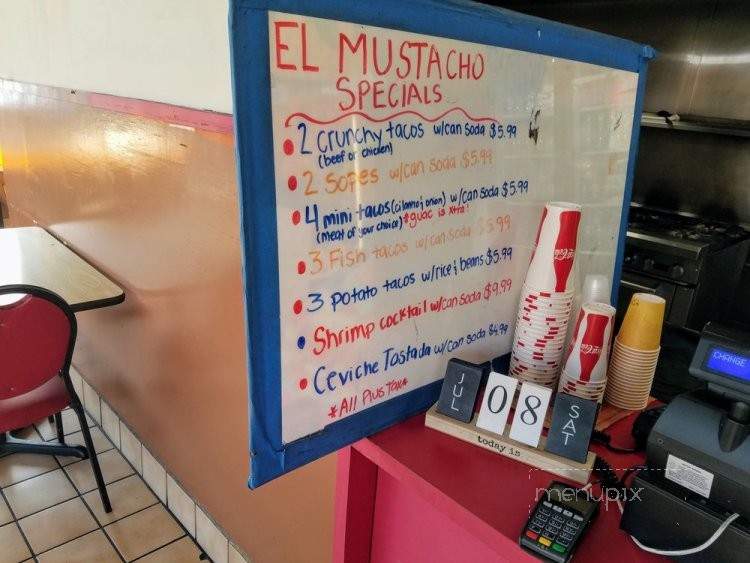 EL MUSTACHO
SPECIALS
2 crunchy tacos w/can soda $5.99
(beef or chicken)
2 Sopes w/can soda $5.99
4 mini tacos (cilantro ¡ onion) w/can soda $5.99
(meat of your choice) *guac is xtra!
3 Fish tacos w/can soda $5.99
3 potato tacos w/rice ¡ beans $5.99
Shrimp cocktail w/can soda $9.99
Ceviche Tostada w/can soda $4.99
*All Plus Tax*
JUL 08 SAT
today is...
CHANGE
Coca-Cola
Coca-Cola
menupix